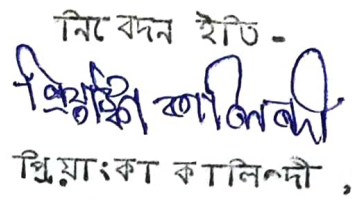 নিবেদন ইতি -
প্রিয়াঙ্কা কালিন্দী
প্রিয়াংকা কালিন্দী,